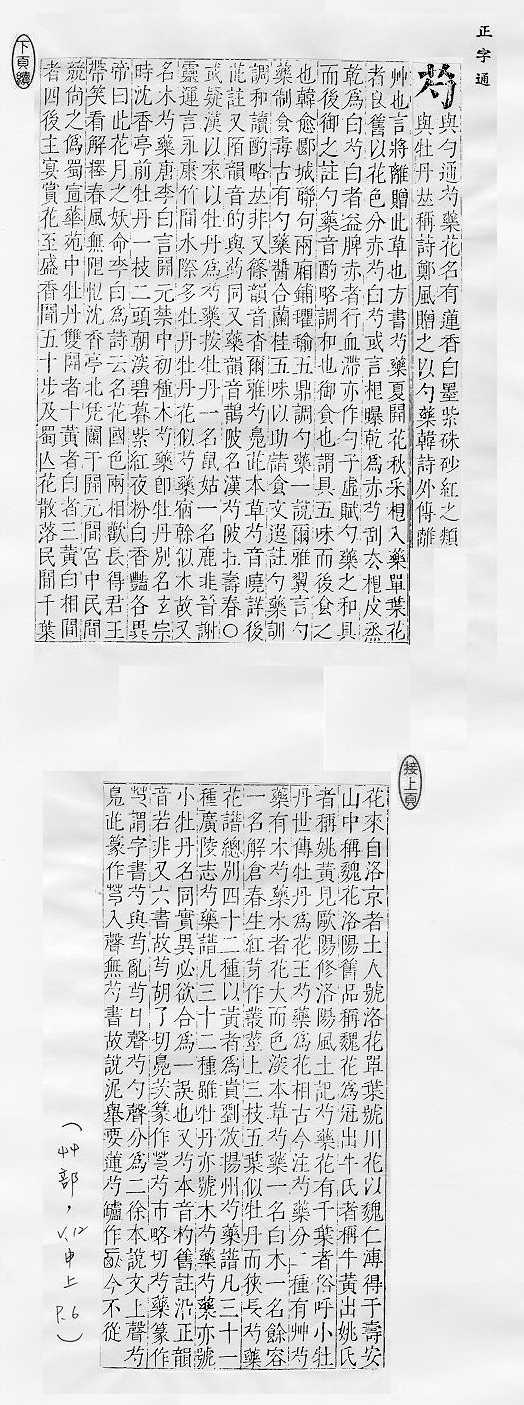 正字通
芍
與勺通芍藥花名有蓮香白墨紫硃砂紅之類
與牡丹𠀤稱詩鄭風贈之以勺藥韓詩外傳離
艸也言將離贈此草也方書芍藥夏開花秋采根入藥單葉花
者良舊以花色分赤芍白芍或言根曝乾爲赤芍刮去根皮烝
乾爲白芍白者益脾赤者行血滯亦作勺子虛賦勺藥之和具
而後御之註勺藥音酌略調和也御食也謂具五味而後食之
也韓愈郾城聯句兩廂鋪氍毹五鼎調勺藥一說爾雅翼言勺
藥制食毒古有勺藥醬合蘭桂五味以助諸食文選註勺藥訓
調和讀酌略𠀤非又篠韻音杳爾雅芍鳧茈本草芍音曉詳後
茈註又陌韻音的與菂同又藥韻音鵲陂名漢芍陂在壽春〇
或疑漢以來以牡丹爲芍藥按牡丹一名鼠姑一名鹿韭晉謝
靈運言永康竹間水際多牡丹牡丹花似芍藥宿幹似木故又
名木芍藥唐李白言開元禁中初種木芍藥卽牡丹別名玄宗
時沈香亭前牡丹一枝二頭朝深碧暮紫紅夜粉白香豔各異
帝曰此花月之妖命李白爲詩云名花國色兩相歡長得君王
帶笑看解釋春風無限恨沈香亭北凭闌干開元間宮中民間
競尙之僞蜀宣華苑中牡丹雙開者十黃者白者三黃白相間
者四後主宴賞花至盛香聞五十步及蜀亾花散落民間千葉
下頁續
接上頁
花來自洛京者土人號洛花單葉號川花以魏仁溥得于壽安
山中稱魏花洛陽舊品稱魏花爲冠出牛氏者稱牛黃出姚氏
者稱姚黃見歐陽修洛陽風土記芍藥花有千葉者俗呼小牡
丹世傳牡丹爲花王芍藥爲花相古今注芍藥分二種有艸芍
藥有木芍藥木者花大而色深本草芍藥一名白木一名餘容
一名解倉春生紅芽作叢莖上三枝五葉似牡丹而狹長芍藥
花譜總別四十二種以黃者爲貴劉攽揚州芍藥譜凡三十一
種廣陵志芍藥譜凡三十二種雖牡丹亦號木芍藥芍藥亦號
小牡丹名同實異必欲合爲一誤也又芍本音杓舊註沿正韻
音若非又六書故芍胡了切鳧茨篆作芍芍市略切芍藥篆作
芍謂字書芍與芍亂芍勺聲芍勺聲分爲二徐本說文上聲芍
鳧茈篆作芍入聲無芍書故說泥舉要蓮芍音爐作今不從
（艸部，V.12
申上
P.6）